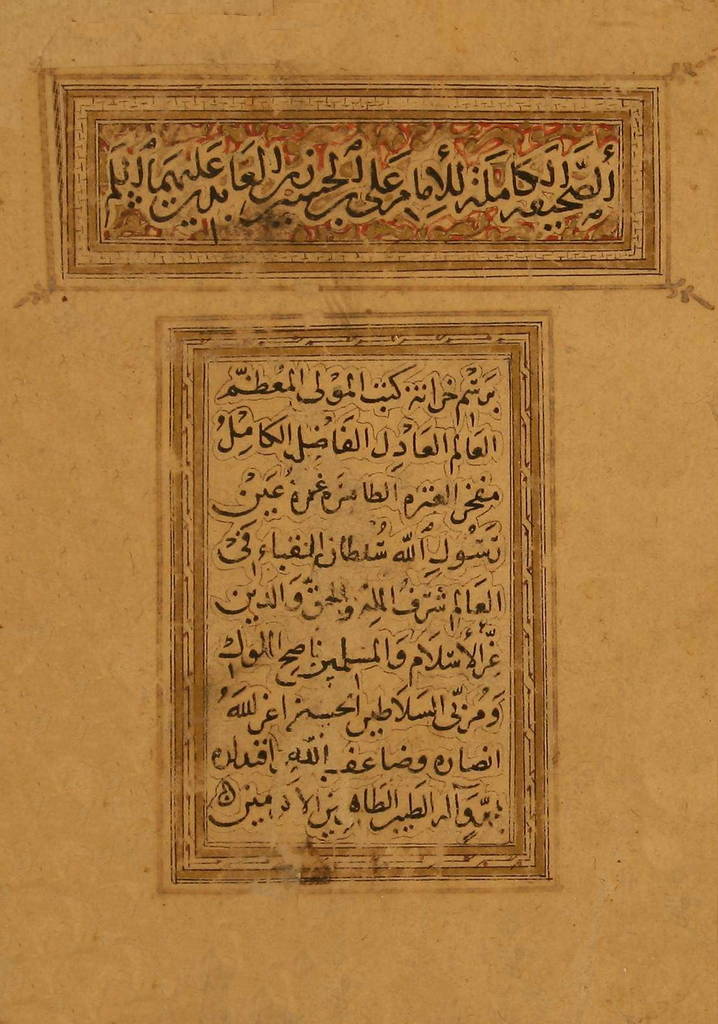 ٱلصَّحِيفَة ٱلكَامِلَة لِلإِمَامِ عَلِي بن ٱلحُسَين زين العَابِدين عَلَيهِمَا ٱلسَّلَم
بِرَسْمِ خزانة كتب المَوْلى المُعَظَّم
العَالِم العَادِلِ الفَاضِلِ الكَامِلُ
مفخر العترة الطاهرة غرة عَين
رَسُولِ ٱللَّه سُلطان النقباء في
العَالمِ شَرَفُ المِلة والحَقّ وَالدين
عِزّ الأسْلَام وَالمسلمين ناصح الملوك
وَمُربّي السَلاطين الحسين اعز اللهُ
انصاره وضاعف اللّه اقتداره
وآله الطيبين الطاهرين